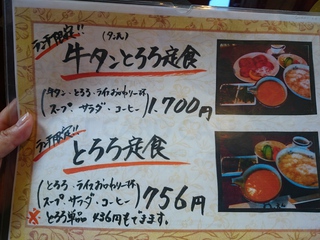 ランチ限定!!
牛タンとろろ定食
(牛タン・とろろ・ライスおかわり一杯
スープ・サラダ・コーヒー) 1,700円
ランチ限定!!
とろろ定食
(とろろ・ライスおかわり一杯
スープ・サラダ・コーヒー) 756円
※とろろ単品 436円もできます。